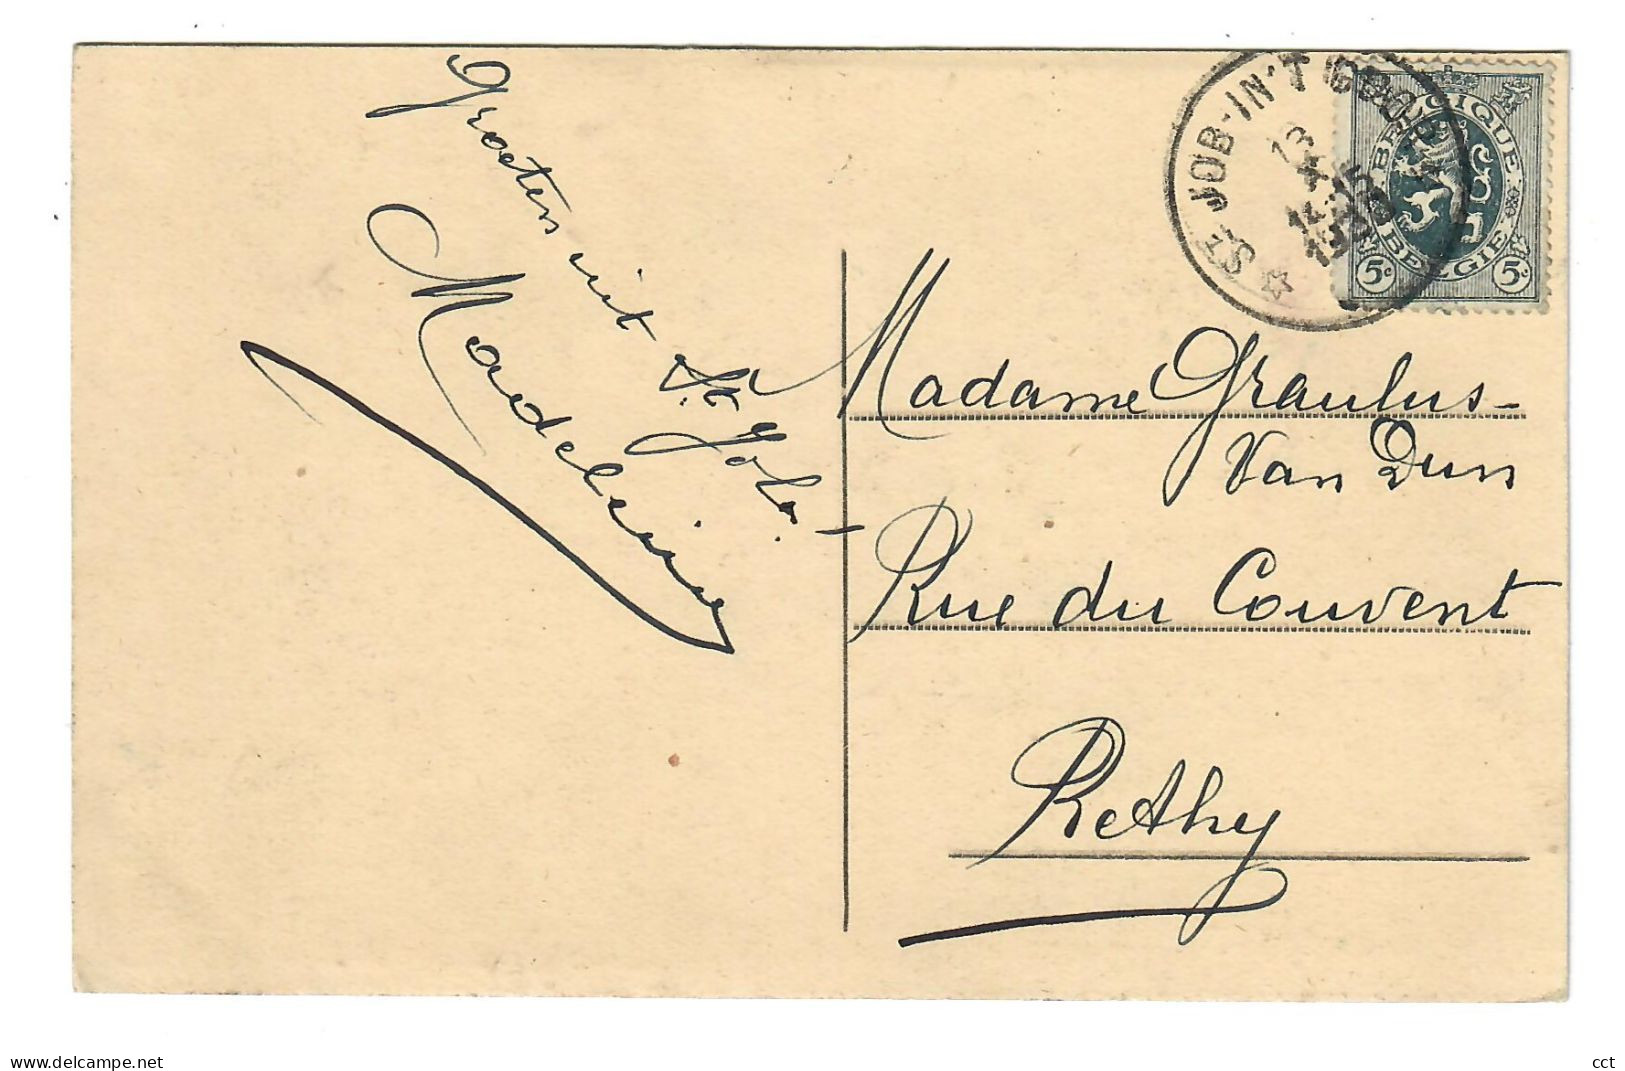 Groeten uit
St. Job.
Madeleine
ST JOB-IN'T GOOR
BELGIQUE
BELGIE
5c 5c
Madame Graulus-
Van Dun
Rue du Couvent
Rethy
www.delcampe.net
cct